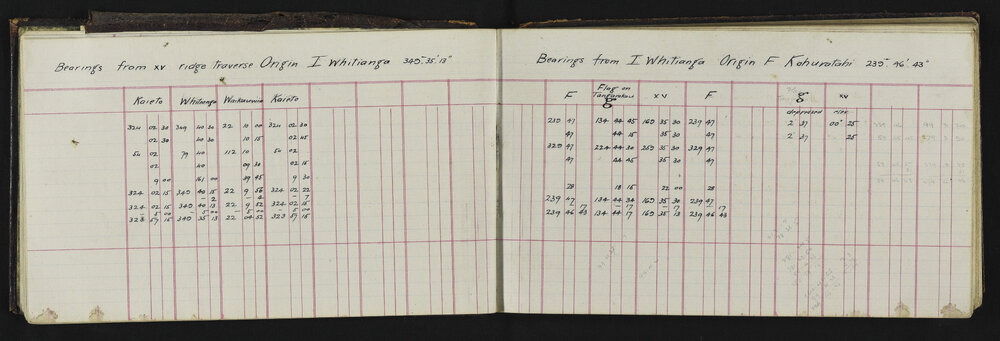 Bearings from xv ridge traverse Origin I Whitianga 349°.35'.13"
Kaieto Whitianga Kaieto
324 02 30 349 40 30 22 10 00 324 02 30
02 30 40 30 10 15 02 45
54 02 79 40 112 10 54 02
02 40 09 30 02 15
9 00 161 00 39 45 9 30
324 02 15 349 40 15 22 9 56 324 02 22
– 2 – 4 – 7
324 02 15 349 40 13 22 9 52 324 02 15
– 5 00 – 5 00 – 5 00 – 5 00
323 57 15 349 35 13 22 04 52 323 57 15
Bearings from I Whitianga Origin F Kohuratahi 239°.46' 43"
F Flag on Tangarakau g xv F g xv
depressed rise
239 47 134 44 45 169 35 30 239 47 2° 37 00° 25
47 44 15 35 30 47 2° 37 25
329 47 224 44 30 259 35 30 329 47
47 44 45 35 30 47
28 18 15 22 00 28
239 47 134 44 34 169 35 30 239 47
– 17 – 17 – 17 – 17
239 46 43 134 44 17 169 35 13 239 46 43